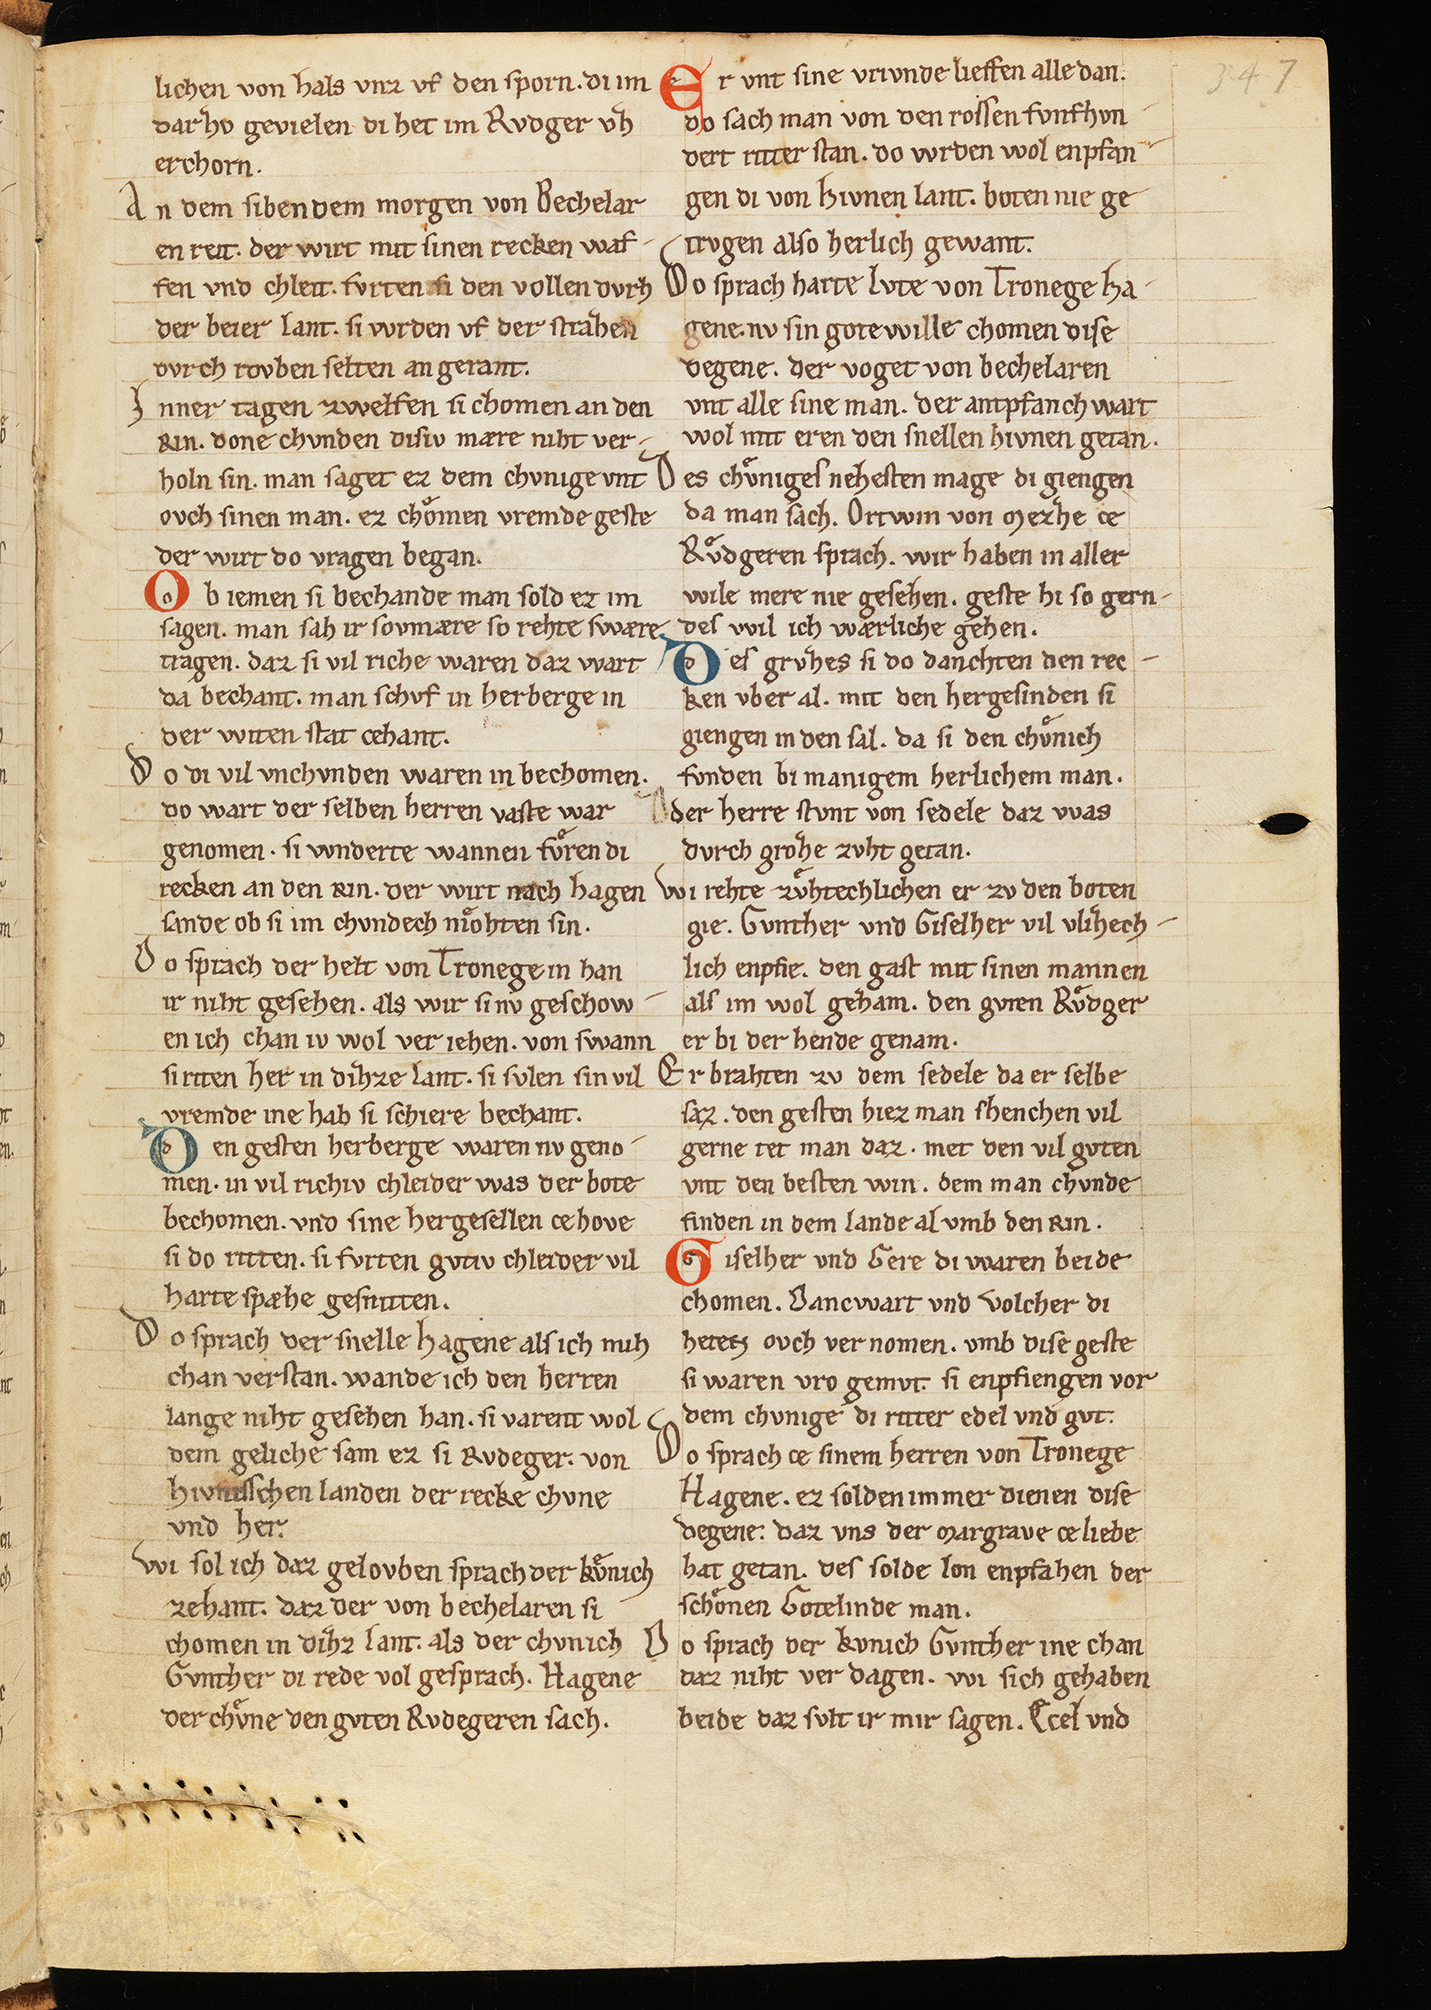 lichen von hals vnz vf den sporn. di im
darhv gevielen di het im Rvdger vh
erchorn.
An dem sibendem morgen von Bechelar
en reit. der wirt mit sinen recken waf-
fen vnd chleit. fvrten si den vollen dvrh
der beier lant. si wrden vf der strahen
dvrch rovben selten an gerant.
Inner tagen zwelfen si chomen an den
Rin. done chvnden disiv mære niht ver-
holn sin. man saget ez dem chvnige vnt
ovch sinen man. ez choͤmen vremde geste
der wirt do vragen began.
Ob iemen si bechande man sold ez im
sagen. man sah ir sovmære so rehte swære
tragen. daz si vil riche waren daz wart
da bechant. man schvf in herberge in
der witen stat cehant.
Do di vil vnchvnden waren in bechomen.
do wart der selben herren vaste war
genomen. si wnderte wannen fvͤren di
recken an den Rin. der wirt nach hagen
sande ob si im chvndech moͤhten sin.
Do sprach der helt von Tronege in han
ir niht gesehen. als wir si nv geschow-
en ich chan iv wol ver iehen. von swann
si riten her in dihze lant. si svlen sin vil
vremde ine hab si schiere bechant.
Den gesten herberge waren nv geno-
men. in vil richiv chleider was der bote
bechomen. vnd sine hergesellen ce hove
si do ritten. si fvrten gvtiv chleider vil
harte spæhe gesnitten.
Do sprach der snelle hagene als ich mih
chan verstan. wande ich den herren
lange niht gesehen han. si varent wol
dem geliche sam ez si Rvdeger. von
hivnisschen landen der recke chvne
vnd her.
Wi sol ich daz gelovben sprach der kvͤnich
zehant. daz der von bechelaren si
chomen in dihz lant. als der chvnich
Gvnther di rede vol gesprach. Hagene
der chvͤne den gvten Rvdegeren sach.
Er vnt sine vrivnde lieffen alle dan.
do sach man von den rossen fvnfhvn
dert ritter stan. do wrden wol enpfan-
gen di von hivnen lant. boten nie ge
trvgen also herlich gewant.
Do sprach harte lvte von Tronege ha-
gene. nv sin gote wille chomen dise
degene. der voget von bechelaren
vnt alle sine man. der antpfanch wart
wol mit eren den snellen hivnen getan.
Des chvͤniges nehesten mage di giengen
da man sach. Ortwin von Mezhe ce
Rvͤdgeren sprach. wir haben in aller
wile mere nie gesehen. geste hi so gern-
des wil ich wærliche gehen.
Des grvhes si do danchten den rec-
ken vber al. mit den hergesinden si
giengen in den sal. da si den chvͤnich
fvnden bi manigem herlichem man.
der herre stvnt von sedele daz was
dvrch grohe zvht getan.
Wi rehte zvͤhtechlichen er zv den boten
gie. Gvnther vnd Giselher vil vlihech-
lich enpfie. den gast mit sinen mannen
als im wol geham. den gvten Rvͤdger
er bi der hende genam.
Er brahten zv dem sedele da er selbe
saz. den gesten hiez man shenchen vil
gerne tet man daz. met den vil gvten
vnt den besten win. dem man chvnde
finden in dem lande al vmb den Rin.
Giselher vnd Gere di waren beide
chomen. Dancwart vnd Volcher di
hetetz ovch ver nomen. vmb dise geste
si waren vro gemvt. si enpfiengen vor
dem chvnige di ritter edel vnd gvt.
Do sprach ce sinem herren von Tronege
Hagene. ez solden immer dienen dise
degene. daz vns der Margrave ce liebe
hat getan. des solde lon enpfahen der
schoͤnen Gotelinde man.
Do sprach der kvnich Gvnther ine chan
daz niht ver dagen. wi sich gehaben
beide daz svlt ir mir sagen. Ecel vnd
347